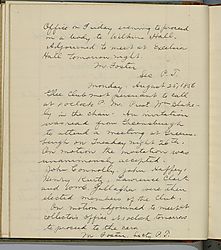 Office on Friday evening to proceed
in a body to Wilkins Hall.
Adjourned to meet at Excelsior
Hall tomorrow night.
M. Foster
Sec P. T.
Monday. August 25, 1856
Glee Club met pursuant to call
at 7 oclock P. M. Prest. Wm Blake-
ly in the chair. An invitation
was read from
to attend a meeting at Greens-
burgh on Tuesday night 26th.
On motion the invitation was
unanimously accepted.
John Connolly, John Caffrey,
Henry Wertz, Lawrence Clark
and Wm Gallagher were then
elected members of the Club.
On motion adjourned to meet at
Collectors office at oclock tomorrow
to proceed to the cars.
M. Foster, Sec P. T.